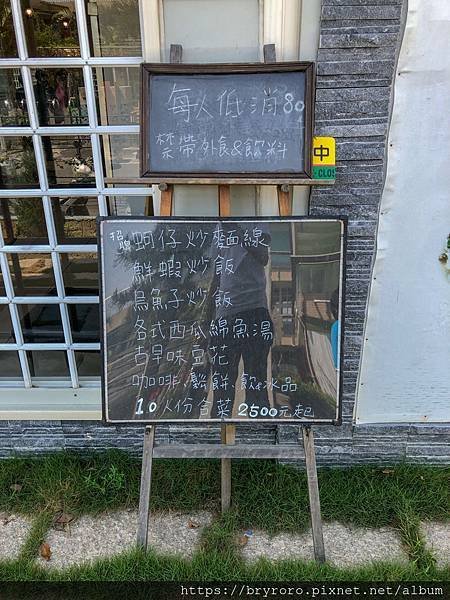 每人低消80
禁帶外食&飲料
中
CLOS
招牌 蚵仔炒麵線
鮮蝦炒飯
烏魚子炒飯
各式西瓜綿魚湯
古早味豆花
咖啡、鬆餅、飲&冰品
10人份合菜 2500元起
https://bryroro.pixnet.net/album